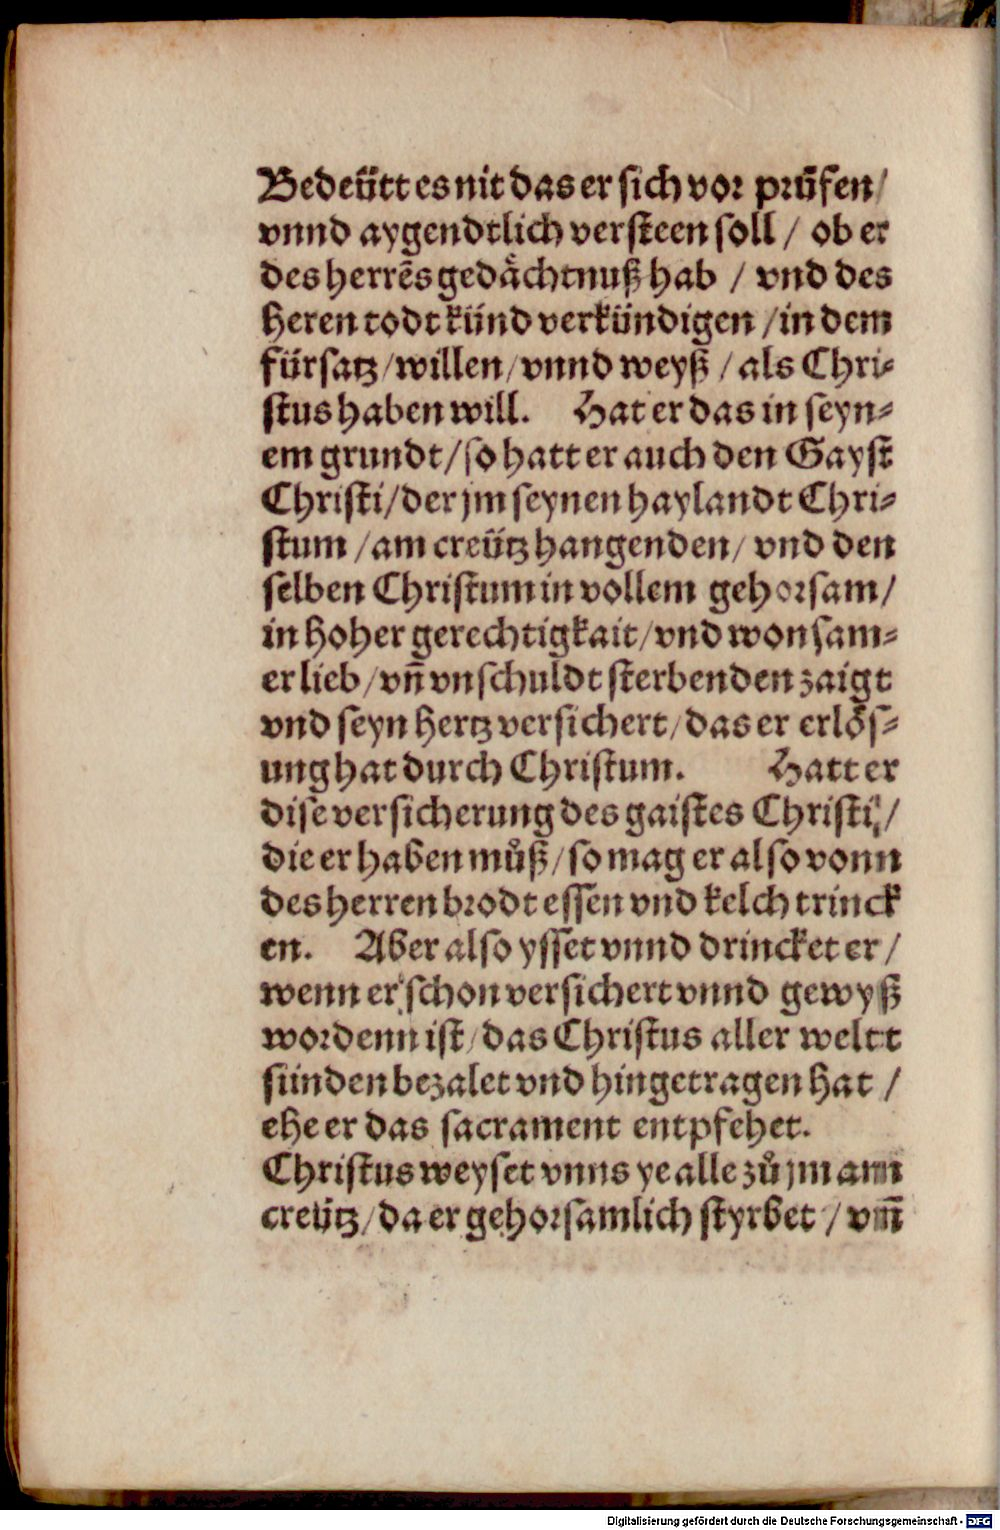 Bedeütt es nit das er sich vor prüfen /
vnnd aygendtlich versteen soll / ob er
des herrẽs gedaͤchtnuß hab / vnd des
Heren todt künd verkündigen / in dem
fürsatz / willen / vnnd weyß / als Chri⸗
stus haben will. Hat er das in seyn⸗
em grundt / so hatt er auch den Gayst
Christi / der jm seynen haylandt Chri⸗
stum / am creütz hangenden / vnd den
selben Christum in vollem gehorsam /
in hoher gerechtigkait / vnd wonsam⸗
er lieb / vñ vnschuldt sterbenden zaigt
vnd seyn hertz versichert / das er erloͤs⸗
ung hat durch Christum. Hatt er
dise versicherung des gaistes Christi /
die er haben muͦß / so mag er also vonn
des herren brodt essen vnd kelch trinck
en. Aber also ysset vnnd drincket er /
wenn er schon versichert vnnd gewyß
wordenn ist / das Christus aller weltt
sünden bezalet vnd hingetragen hat /
ehe er das sacrament entpfehet.
Christus weyset vnns ye alle zuͦ jm ann
creütz / da er gehorsamlich styrbet / vnñ
Digitalisierung gefördert durch die Deutsche Forschungsgemeinschaft - DFG